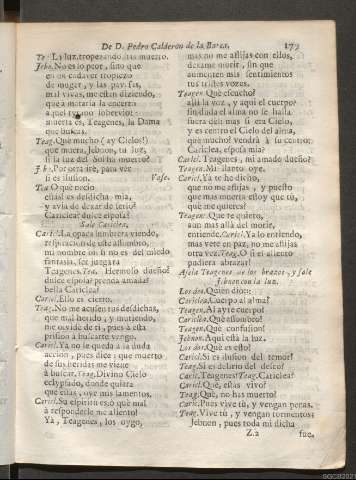 De D. Pedro Calderon de la Barca. 179
Te. La luz, tropezando has muerto.
Jebn. No es lo peor, sino que
en un cadaver tropiezo
de muger, y las paredes,
mal vivas, me estan diziendo,
que à matarla la encerrò
aquel tyrano
muerta es, Teagenes, la Dama
que buscas.
Teag. Què mucho (ay Cielos!)
que muera, Jebnon, tu luz,
si la luz del Sol ha muerto?
Jebn. Por otra irè, para vèr
si es ilusion. Vase.
Tea. O què necio
estàs! es desdicha mia,
y avia de dexar de serlo?
Cariclea? dulce esposa?
Sale Cariclea.
Caric. La opaca sombra viendo,
respiracion de este assombro,
mi nombre oì: si no es del miedo
fantasia, serà
Teagenes. Tea. Hermoso dueño?
dulce esposa? prenda amada?
bella Cariclea?
Caricl. Ello es cierto.
Teag. No me acusen tus desdichas,
que mal herido, y mal sentido,
me olvidè de ti, pues à esta
prision à buscarte vengo.
Caricl. Ya no le queda à la duda
accion, pues dice; que muerto
de sus heridas me viene
à buscar. Teag. Divino Cielo
eclyptado, donde quiera
que estàs, oye mis lamentos.
Caricl. Su espiritu es, ò què mal
à responderle me aliento!
Ya, Teagenes, los oygo,
mas no me aflijas con ellos,
dexame morir, sin que
aumenten mis sentimientos
tus tristes vozes.
Teagen. Què escucho?
allì la voz, y aqui el cuerpo?
sin duda el alma no se halla
fuera de sì mas si era Cielo,
y es centro el Cielo del alma,
què mucho? vendrà à su centro;
Cariclea, esposa mia?
Caricl. Teagenes, mi amado dueño?
Teagen. Mi llanto oye.
Caricl. Ya te he dicho,
que no me aflijas, y puesto
que mas muerta estoy que tù,
què me quieres?
Teagen. Que te quiero,
aun mas allà del morir,
entiende. Caricl. Ya lo entiendo,
mas vete en paz, no me aflijas
otra vez. Teag. O si el aliento
pudiera abrazar!
Asela Teagenes de los brazos, y sale
Jebnon con la luz.
Los dos. Quien diò::
Cariclea. Cuerpo al alma?
Teagen. Al ayre cuerpo?
Cariclea. Què assombro?
Teagen. Què confusion?
Jebnon. Aqui està la luz.
Los dos. Què es esto?
Caricl. Si es ilusion del temor?
Teag. Si es delirio del deseo?
Caric. Teagenes? Teag. Cariclea?
Caricl. Què, estàs vivo?
Teag. Què, no has muerto?
Caric. Pues vive tù, y vengan penas.
Teag. Vive tù, y vengan tormentos:
Jebnon, pues toda mi dicha
Z.2 fue,
SGCB2021